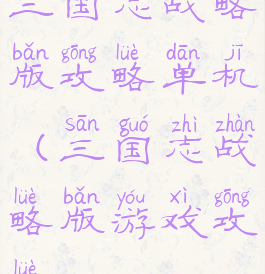 三国志战略
bǎn gōng lüè dān jī
版攻略单机
sān guó zhì zhàn
(三国志战
lüè bǎn yóu xì gōng
略版游戏攻
lüè